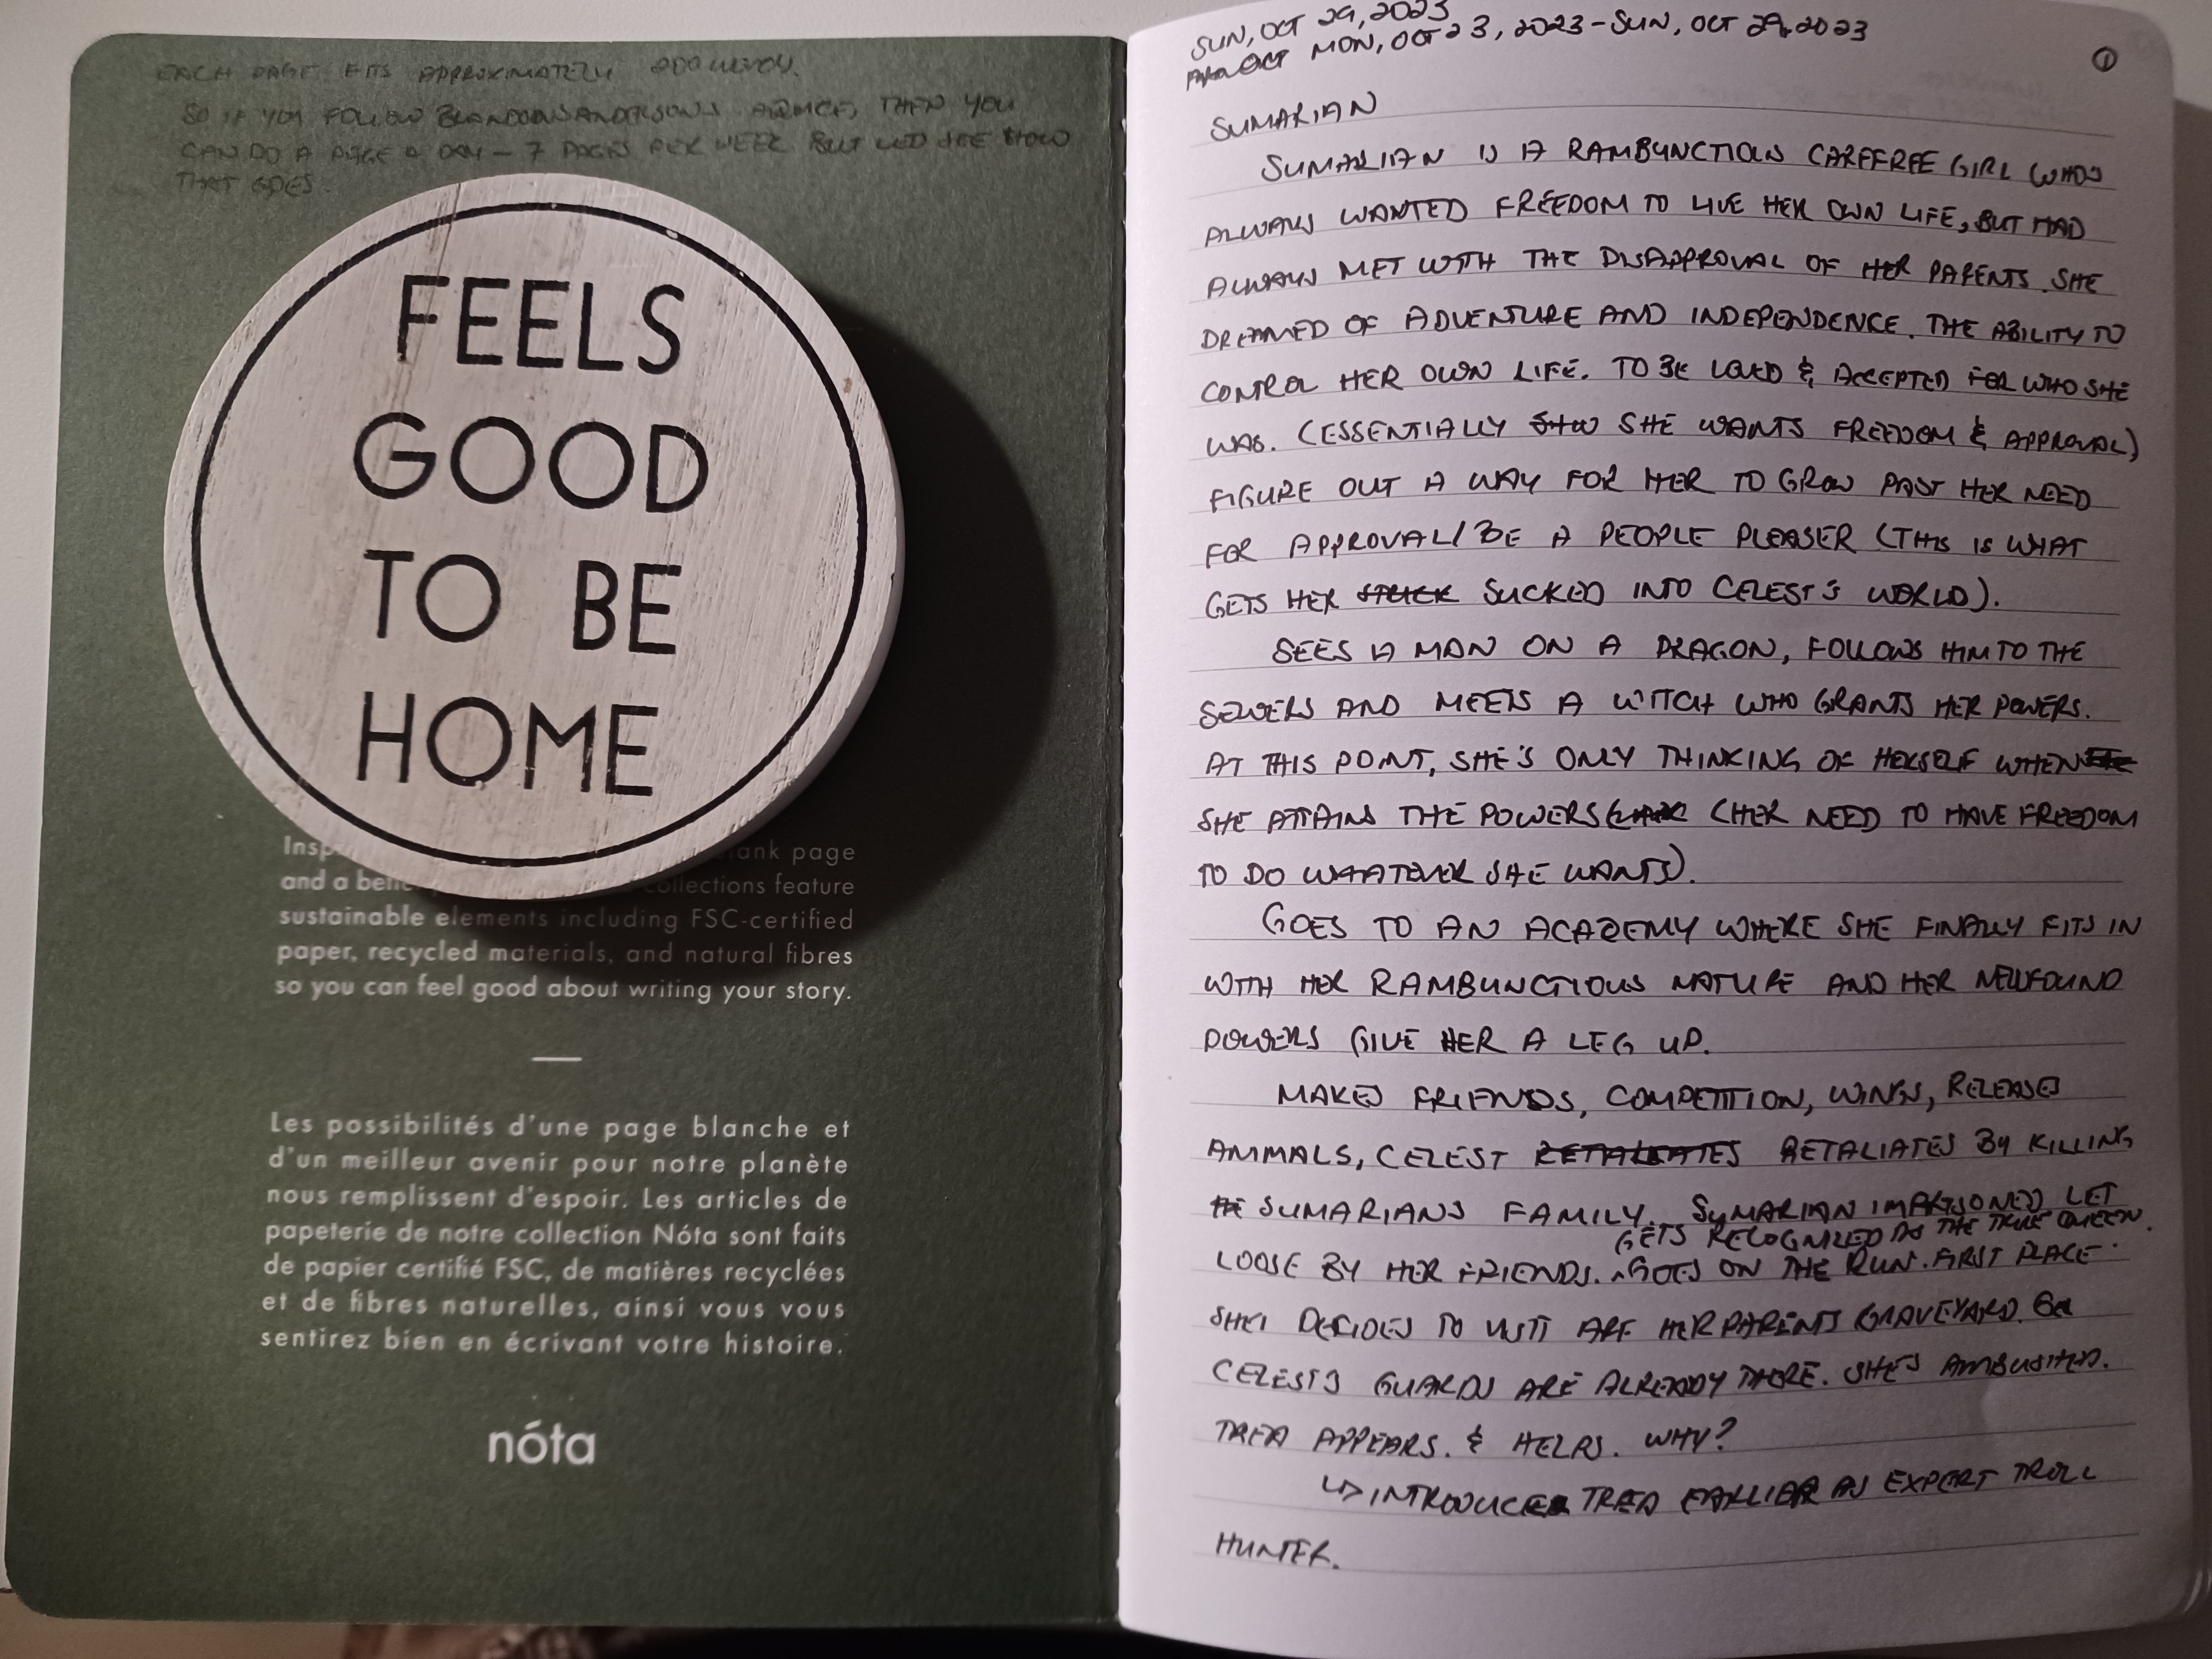 EACH PAGE FITS APPROXIMATELY 200 WORDS.
SO IF YOU FOLLOW BRANDONSANDERSONS ADVICE, THEN YOU
CAN DO A PAGE A DAY – 7 PAGES PER WEEK BUT SEE HOW
THAT GOES.
FEELS
GOOD
TO BE
HOME
ank page
and a beli collections feature
sustainable elements including FSC-certified
paper, recycled materials, and natural fibres
so you can feel good about writing your story.
Les possibilités d'une page blanche et
d'un meilleur avenir pour notre planète
nous remplissent d'espoir. Les articles de
papeterie de notre collection Nóta sont faits
de papier certifié FSC, de matières recyclées
et de fibres naturelles, ainsi vous vous
sentirez bien en écrivant votre histoire.
nóta
SUN, OCT 29, 2023
MON, OCT 23, 2023 – SUN, OCT 29, 2023
1
SUMARIAN
SUMARIAN IS A RAMBUNCTIOUS CAREFREE GIRL WHO'S
ALWAYS WANTED FREEDOM TO LIVE HER OWN LIFE, BUT HAD
ALWAYS MET WITH THE DISAPPROVAL OF HER PARENTS. SHE
DREAMED OF ADVENTURE AND INDEPENDENCE. THE ABILITY TO
CONTROL HER OWN LIFE. TO BE LOVED & ACCEPTED FOR WHO SHE
WAS. (ESSENTIALLY SHE WANTS FREEDOM & APPROVAL)
FIGURE OUT A WAY FOR HER TO GROW PAST HER NEED
FOR APPROVAL/BE A PEOPLE PLEASER (THIS IS WHAT
GETS HER STUCK SUCKED INTO CELEST'S WORLD).
SEES A MAN ON A DRAGON, FOLLOWS HIM TO THE
SEWERS AND MEETS A WITCH WHO GRANTS HER POWERS.
AT THIS POINT, SHE'S ONLY THINKING OF HERSELF WHEN SHE
SHE ATTAINS THE POWERS (HER NEED TO HAVE FREEDOM
TO DO WHATEVER SHE WANTS).
GOES TO AN ACADEMY WHERE SHE FINALLY FITS IN
WITH HER RAMBUNCTIOUS NATURE AND HER NEWFOUND
POWERS GIVE HER A LEG UP.
MAKES FRIENDS, COMPETITION, WINS, RELEASES
ANIMALS, CELEST RETALIATES RETALIATES BY KILLING
SUMARIANS FAMILY. SUMARIAN IMPRISONED LET
GETS RECOGNIZED AS THE TRUE QUEEN.
LOOSE BY HER FRIENDS. GOES ON THE RUN. FIRST PLACE
SHE DECIDES TO VISIT ARE HER PARENTS GRAVEYARD.
CELESTS GUARDS ARE ALREADY THERE. SHE'S AMBUSHED.
TREA APPEARS. & HELPS. WHY?
↳ INTRODUCE TREA EARLIER AS EXPERT TROLL
HUNTER.